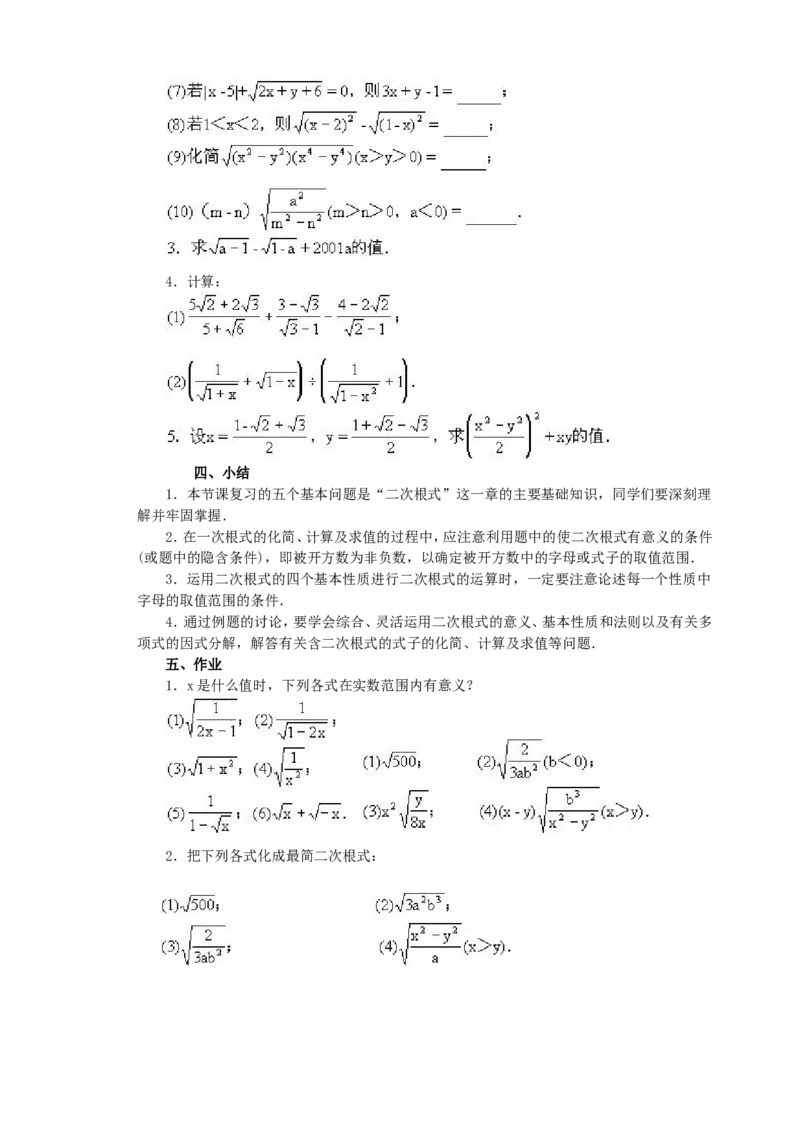 (7)若|x-5|+√(2x+y+6)=0，则3x+y-1=_____；
(8)若1＜x＜2，则√((x-2)²)-√((1-x)²)=_____；
(9)化简√((x²-y²)(x⁴-y⁴))(x＞y＞0)=_____；
(10)（m-n）√(a²/(m²-n²))(m＞n＞0，a＜0)=______．
3．求√(a-1)-√(1-a)+2001a的值．
4．计算：
(1)(5√2+2√3)/(5+√6)+(3-√3)/(√3-1)-(4-2√2)/(√2-1)；
(2)(1/√(1+x)+√(1-x))÷(1/√(1-x²)+1)．
5．设x=(1-√2+√3)/2，y=(1+√2-√3)/2，求((x²-y²)/2)²+xy的值．
四、小结
1．本节课复习的五个基本问题是“二次根式”这一章的主要基础知识，同学们要深刻理
解并牢固掌握．
2．在一次根式的化简、计算及求值的过程中，应注意利用题中的使二次根式有意义的条件
(或题中的隐含条件)，即被开方数为非负数，以确定被开方数中的字母或式子的取值范围．
3．运用二次根式的四个基本性质进行二次根式的运算时，一定要注意论述每一个性质中
字母的取值范围的条件．
4．通过例题的讨论，要学会综合、灵活运用二次根式的意义、基本性质和法则以及有关多
项式的因式分解，解答有关含二次根式的式子的化简、计算及求值等问题．
五、作业
1．x是什么值时，下列各式在实数范围内有意义？
(1)√(1/(2x-1))；(2)1/√(1-2x)；
(3)√(1+x²)；(4)√(1/x²)； (1)√500； (2)√(2/(3ab²))(b＜0)；
(5)1/(1-√x)；(6)√x+√(-x)． (3)x²√(y/(8x))； (4)(x-y)√(b³/(x²-y²))(x＞y)．
2．把下列各式化成最简二次根式：
(1)√500； (2)√(3a²b³)；
(3)√(2/(3ab²))； (4)√((x²-y²)/a)(x＞y)．